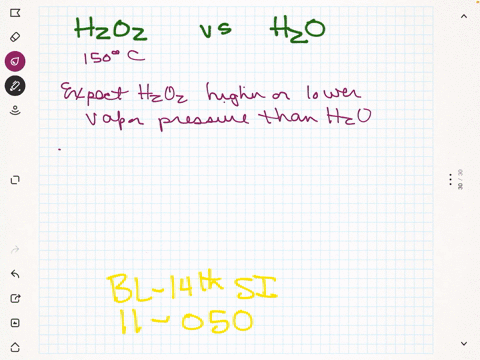 H2O2 vs H2O
150° C
Expect H2O2 higher or lower
vapor pressure than H2O
BL-14th SI
11-050
30 / 30